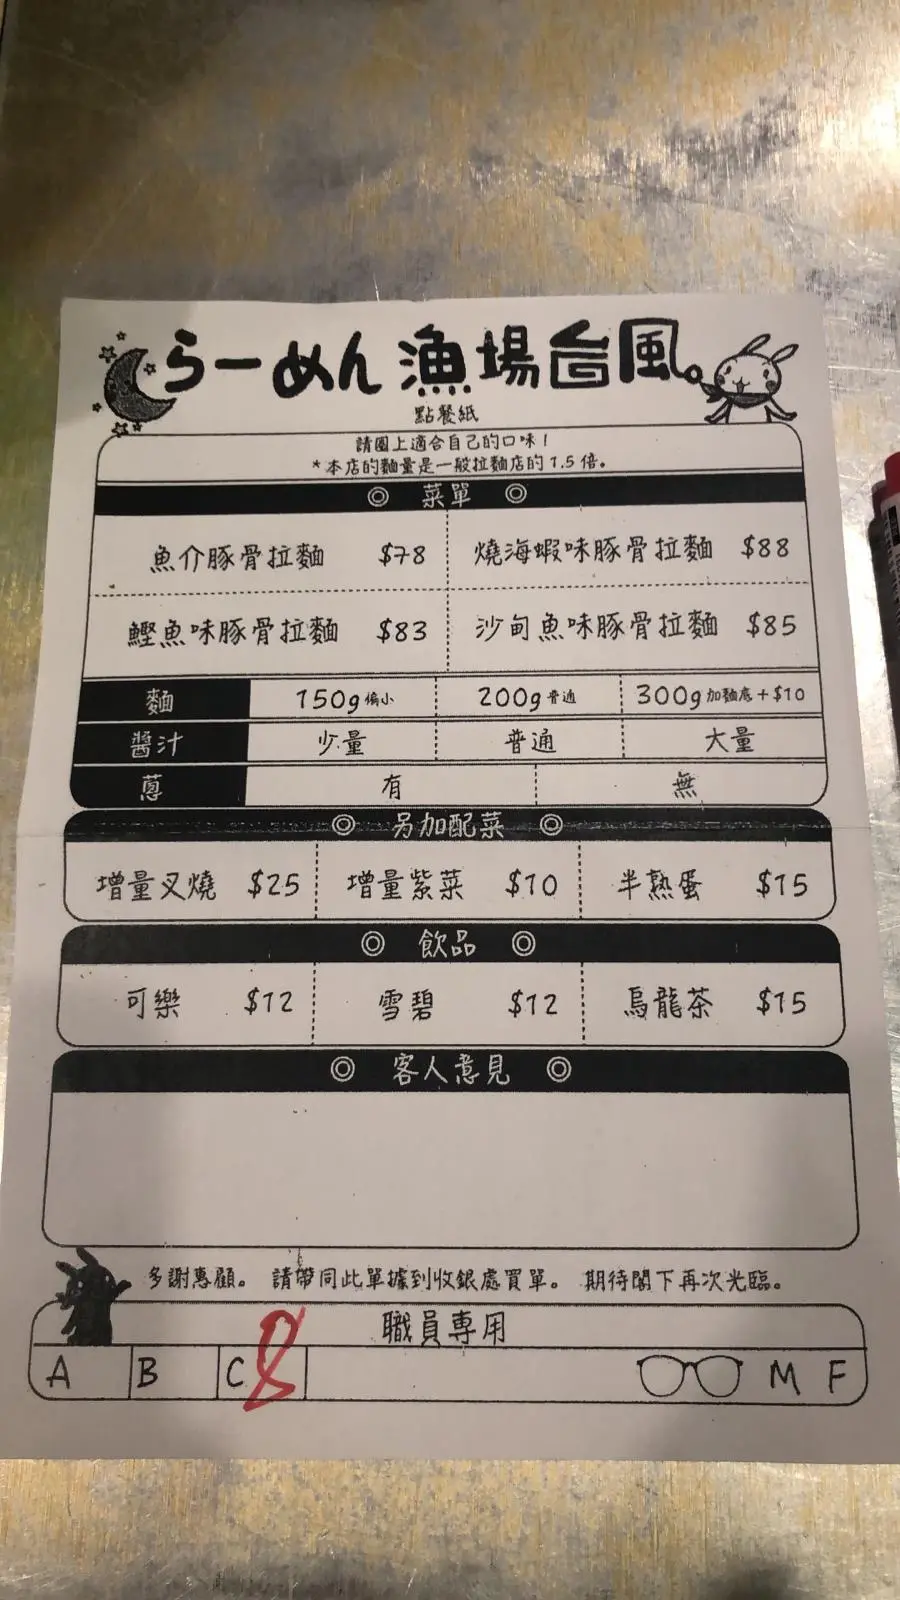 らーめん 漁場台風。
點餐紙
請圈上適合自己的口味！
*本店的麵量是一般拉麵店的1.5倍。
◎ 菜單 ◎
魚介豚骨拉麵 $78 燒海蝦味豚骨拉麵 $88
鰹魚味豚骨拉麵 $83 沙甸魚味豚骨拉麵 $85
麵 150g偏小 200g普通 300g加麵底+$10
醬汁 少量 普通 大量
蔥 有 無
◎ 另加配菜 ◎
增量叉燒 $25 增量紫菜 $10 半熟蛋 $15
◎ 飲品 ◎
可樂 $12 雪碧 $12 烏龍茶 $15
◎ 客人意見 ◎
多謝惠顧。 請帶同此單據到收銀處買單。 期待閣下再次光臨。
職員專用
A B C 8 M F